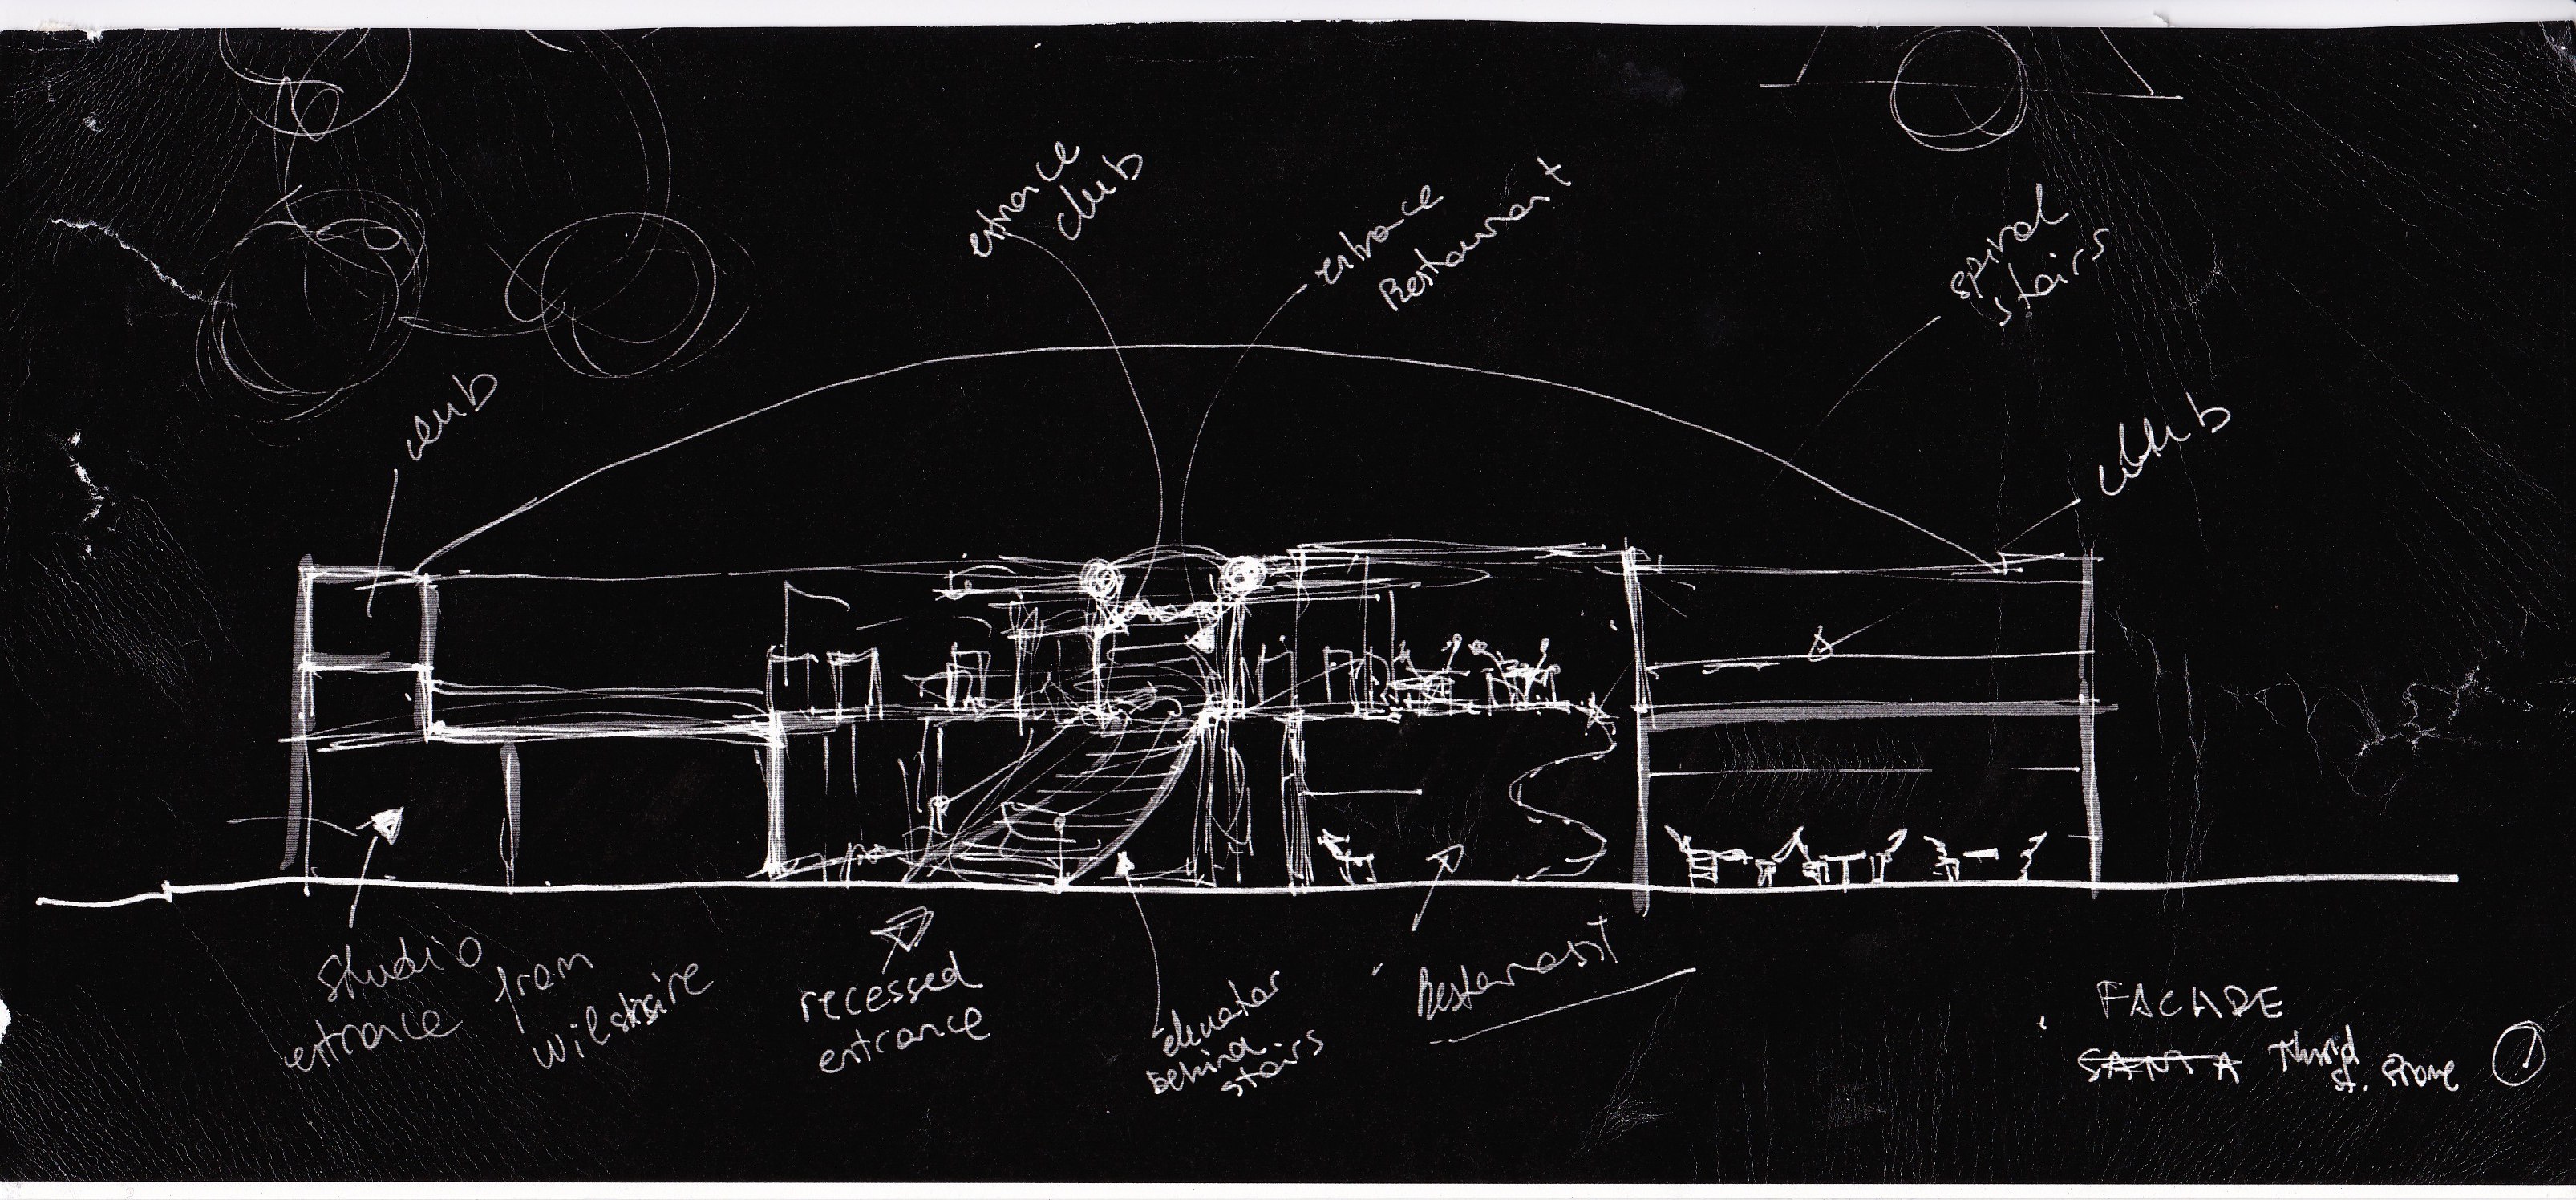 entrance
club
entrance
Restaurant
spiral
stairs
club
club
studio
entrance from
Wilshire
recessed
entrance
elevator
behind
stairs
Restaurant
FACADE
SANTA Third
st. Prome